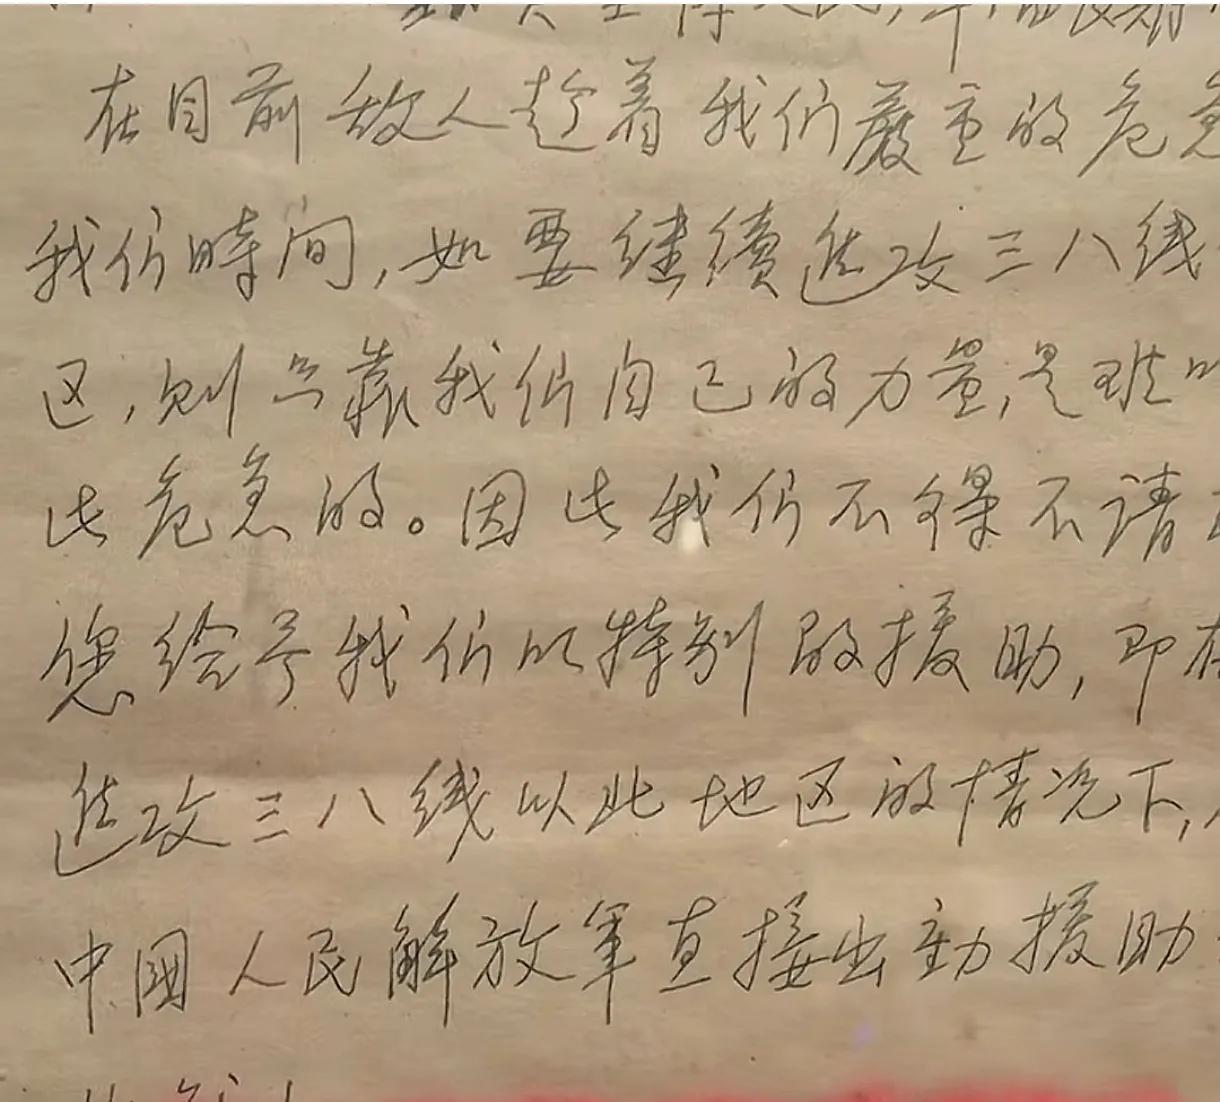 在目前敌人趁着我们嚴重的危急
我们時间,如要继續进攻三八线
区,则只靠我们自己的力量,是难
此危急的。因此我们不得不请
您给予我们以特别的援助,即在
进攻三八线以北地区的情况下,
中國人民解放军直接出動援助